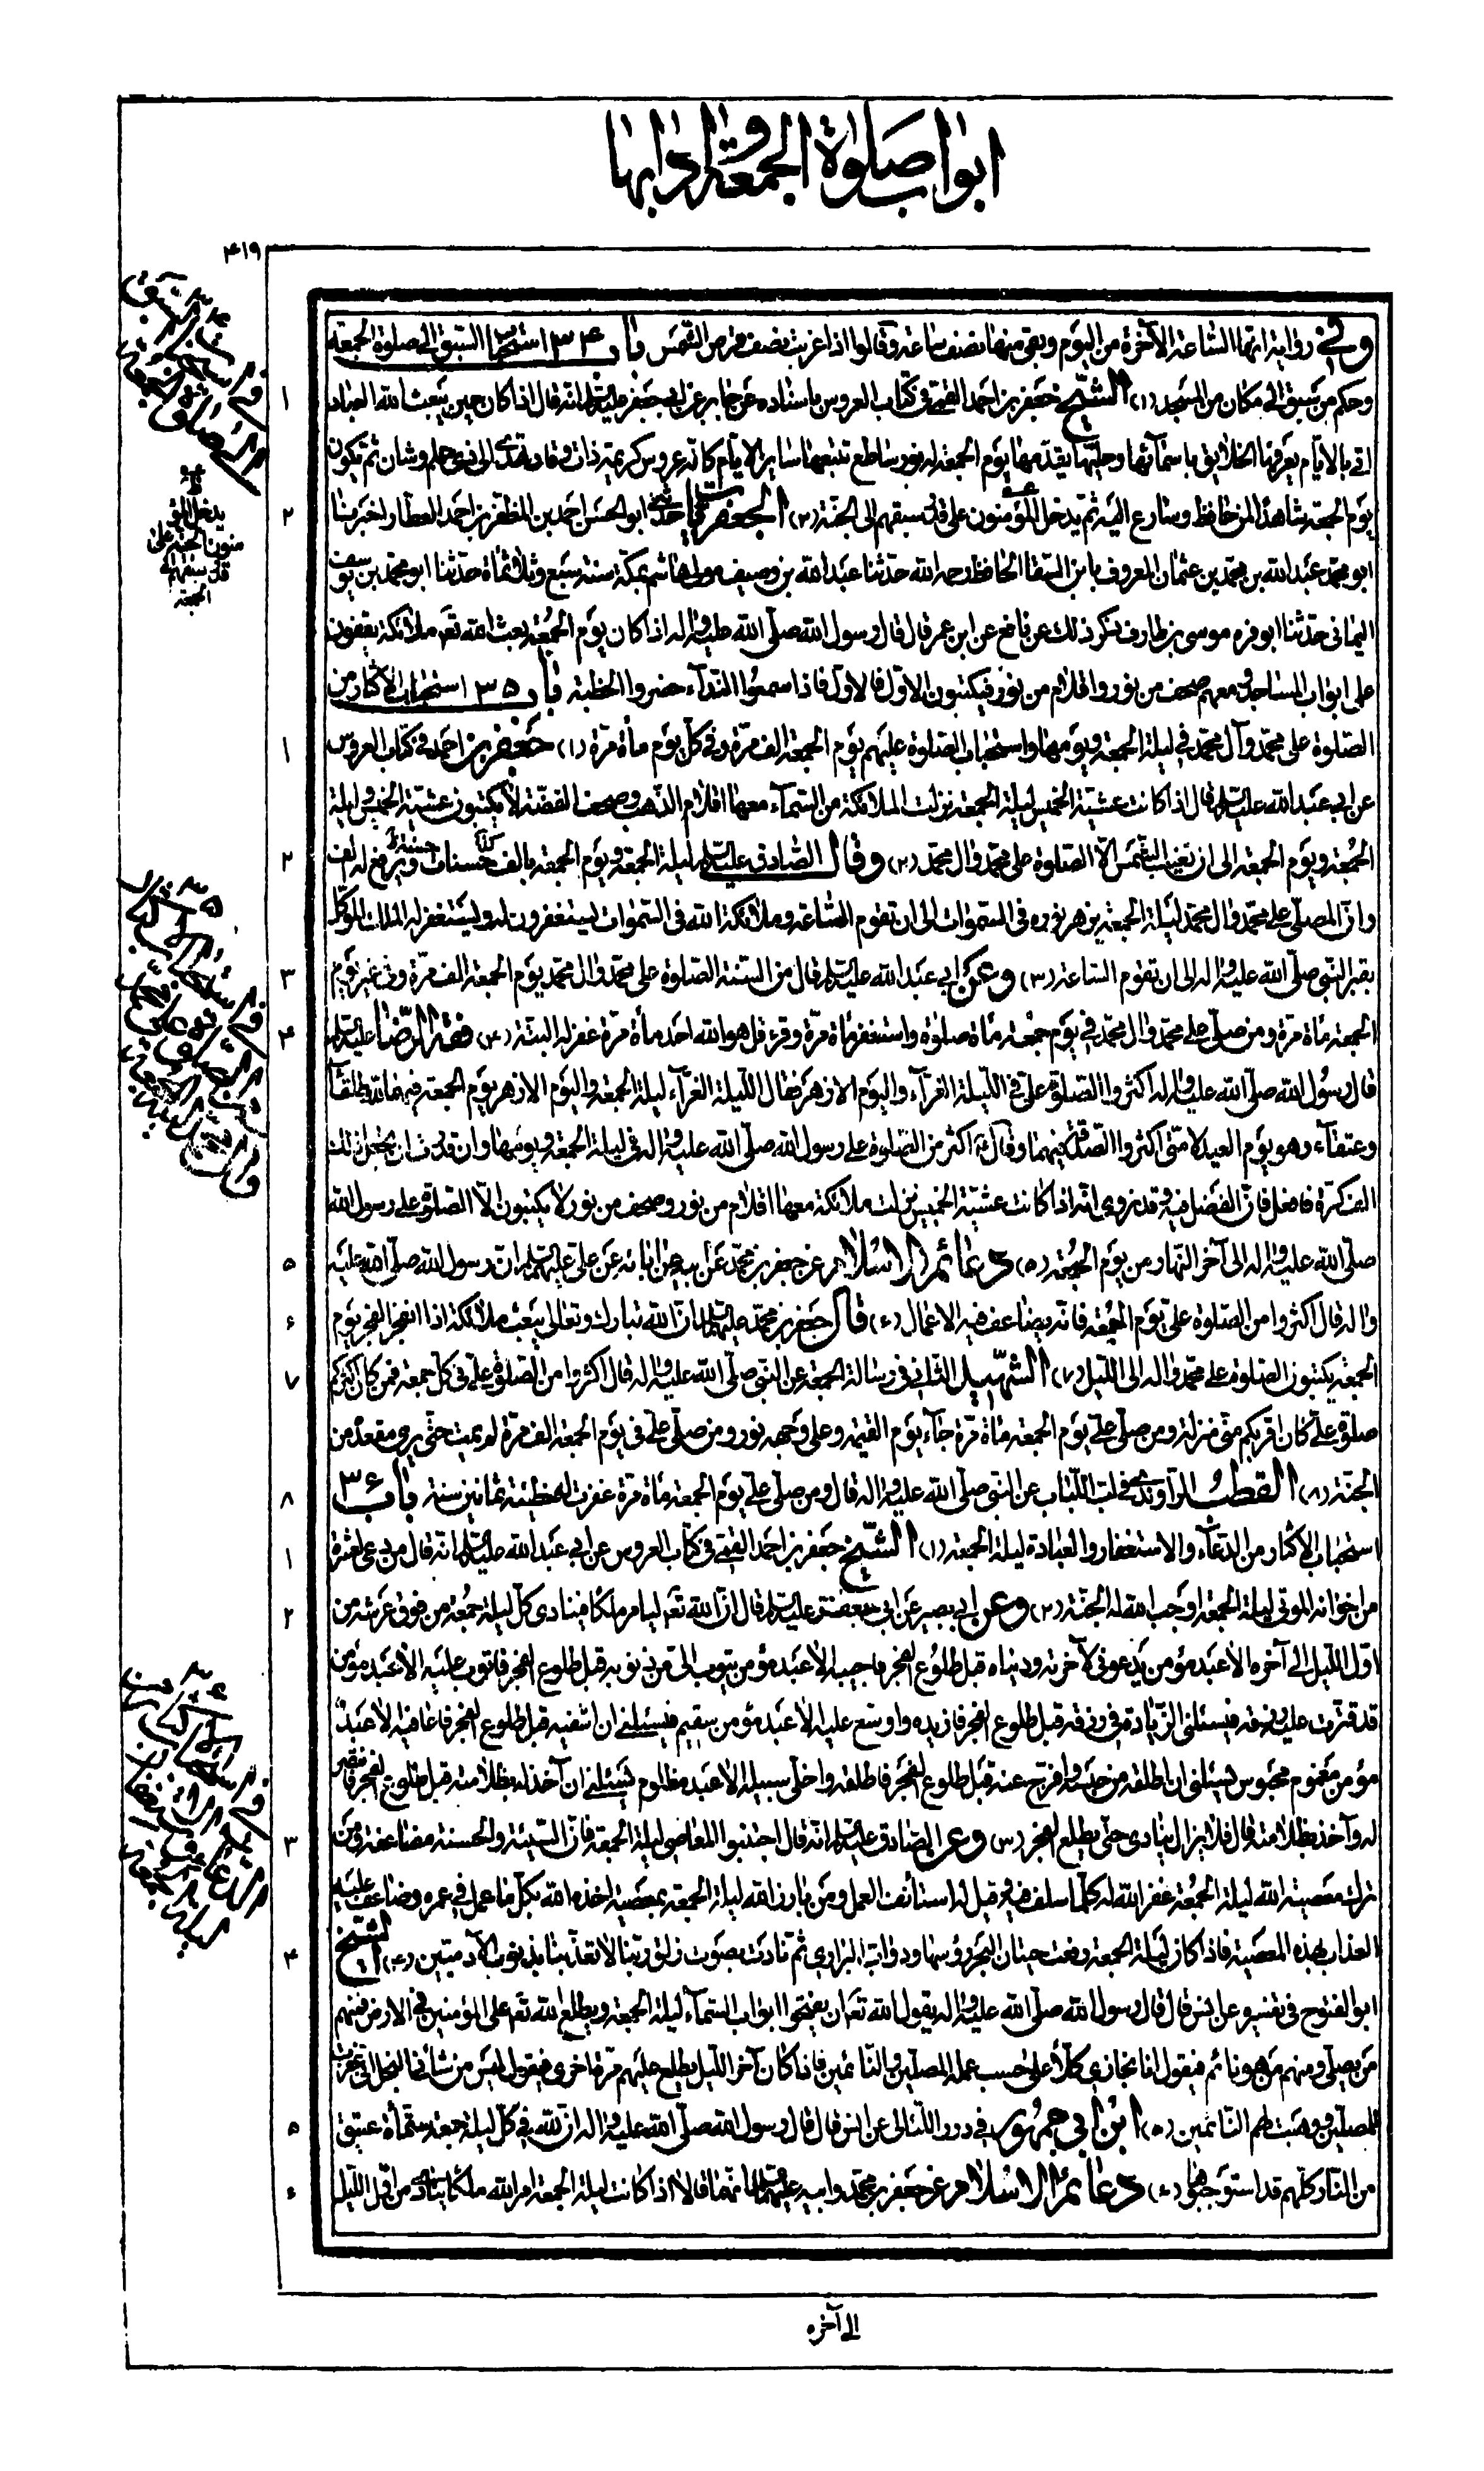 ابواب صلوة الجمعة وادابها
۴۱۹
وفي رواية انها الساعة الآخرة من اليوم وبقى منها نصف ساعة وقالوا اذا غربت نصف قرص الشمس باب ۳۴ استحباب السبق الى صلوة الجمعة
وحكم من سبق الى مكان من المسجد (۱) الشيخ جعفر بن احمد القمي في كتاب العروس باسناده عن جابر عن ابي جعفر عليه السلام انه قال اذا كان حين يبعث الله العباد
اتى بالايام يعرفها الخلائق باسمائها وحليتها يقدمها يوم الجمعة له نور ساطع تتبعها ساير الايام كانه عروس كريمة ذات وقار تهدى الى ذي حلم وشان ثم يكون
يوم الجمعة شاهدا لمن حافظ وسارع اليه ثم يدخل المؤمنون على قدر سبقهم الى الجنة (۲) الجعفريات حدثني الشيخ ابو الحسن احمد بن المظفر بن احمد العطار اخبرنا
ابو محمد عبد الله بن محمد بن عثمان المعروف بابن السقا الحافظ رحمه الله حدثنا عبد الله بن وصيف مولى هاشم بمكة سنة سبع وثلاثمأة حدثنا ابو محمد بن يوسف
اليماني حدثنا ابو قره موسى بن طارف يذكر ذلك عن نافع عن ابن عمر قال قال رسول الله صلى الله عليه واله اذا كان يوم الجمعة بعث الله تعم ملائكة يقفون
على ابواب المساجد ومعهم صحف من نور واقلام من نور فيكتبون الاول فالاول فاذا سمعوا النداء حضروا الخطبة باب ۳۵ استحباب الاكثار من
الصلوة على محمد وآل محمد في ليلة الجمعة ويومها واستحباب الصلوة عليهم يوم الجمعة الف مرة وفي كل يوم مأة مرة (۱) جعفر بن احمد في كتاب العروس
عن ابي عبد الله عليه السلام قال اذا كانت عشية الخميس ليلة الجمعة نزلت الملائكة من السماء معها اقلام الذهب وصحف الفضة لا يكتبون عشية الخميس وليلة
الجمعة ويوم الجمعة الى ان تغيب الشمس الا الصلوة على محمد وال محمد (۲) وقال الصادق عليه السلام ليلة الجمعة ويوم الجمعة بالف حسنات ويرفع له الف
وان المصلي على محمد وال محمد ليلة الجمعة يزهر نوره في السموات الى ان تقوم الساعة وملائكة الله في السموات ليستغفرون له وليستغفر له الملك الموكل
بقبر النبي صلى الله عليه واله الى ان تقوم الساعة (۳) وعن ابي عبد الله عليه السلام قال من السنة الصلوة على محمد وال محمد يوم الجمعة الف مرة وفي غير يوم
الجمعة مأة مرة ومن صلى على محمد وال محمد في يوم جمعة مأة صلوة واستغفر مأة مرة وقرء قل هو الله احد مأة مرة غفر له البتة (۴) فقه الرضا عليه السلام
قال رسول الله صلى الله عليه واله اكثروا الصلوة على في الليلة الغراء واليوم الازهر فقال الليلة الغراء ليلة الجمعة واليوم الازهر يوم الجمعة فيهما لله طلقاء
وعتقاء وهو يوم العيد لامتي اكثروا الصدقة فيهما وقال اكثر من الصلوة على رسول الله صلى الله عليه واله في ليلة الجمعة ويومها وان قدرت ان تجعل ذلك
الف كرة فافعل فان الفضل فيه وقد نروي انه اذا كانت عشية الخميس نزلت ملائكة معها اقلام من نور وصحف من نور لا يكتبون الا الصلوة على رسول الله
صلى الله عليه واله الى آخر النهار من يوم الجمعة (۵) دعائم الاسلام عن جعفر بن محمد عن ابيه عن ابائه عن علي عليهم السلام ان رسول الله صلى الله عليه
واله قال اكثروا من الصلوة على يوم الجمعة فانه يضاعف فيه الاعمال (۶) قال جعفر بن محمد عليهما السلام ان الله تبارك وتعالى يبعث ملائكة اذا انفجر الفجر يوم
الجمعة يكتبون الصلوة على محمد واله الى الليل (۷) الشهيد الثاني في رسالة الجمعة عن النبي صلى الله عليه واله قال اكثروا من الصلوة على في كل جمعة فمن كان اكثركم
صلوة على كان اقربكم مني منزلة ومن صلى على يوم الجمعة مأة مرة جاء يوم القيمة وعلى وجهه نور ومن صلى على في يوم الجمعة الف مرة لم يمت حتى يرى مقعده من
الجنة (۸) القطب الراوندي في لب اللباب عن النبي صلى الله عليه واله قال ومن صلى على يوم الجمعة مأة مرة غفرت له خطيئة ثمانين سنة باب ۳۶
استحباب الاكثار من الدعاء والاستغفار والعبادة ليلة الجمعة (۱) الشيخ جعفر بن احمد القمي في كتاب العروس عن ابي عبد الله عليه السلام انه قال من دعى لعشرة
من اخوانه الموتى ليلة الجمعة اوجب الله له الجنة (۲) وعن ابي بصير عن ابي جعفر عليه السلام قال ان الله تعم ليامر ملكا فينادي كل ليلة جمعة من فوق عرشه من
اول الليل الى آخره الا عبد مؤمن يدعوني لآخرته ودنياه قبل طلوع الفجر فاجيبه الا عبد مؤمن يتوب الى من ذنوبه قبل طلوع الفجر فاتوب عليه الا عبد مؤمن
قد قترت عليه رزقه فيسئلني الزيادة في رزقه قبل طلوع الفجر فازيده واوسع عليه الا عبد مؤمن سقيم فيسئلني ان اشفيه قبل طلوع الفجر فاعافيه الا عبد
مؤمن مغموم محبوس يسئلني ان اطلقه من حبسه وافرج عنه قبل طلوع الفجر فاطلقه واخلي سبيله الا عبد مظلوم يسئلني ان آخذ له بظلامته قبل طلوع الفجر فانتصر
له وآخذ بظلامته قال فلا يزال ينادي حتى يطلع الفجر (۳) وعن الصادق عليه السلام انه قال اجتنبوا المعاصي ليلة الجمعة فان السيئة والحسنة مضاعفة ومن
ترك معصية الله ليلة الجمعة غفر الله له كلما سلف فيه وقيل له استأنف العمل ومن بارز الله ليلة الجمعة بمعصية اخذه الله بكل ما عمل في عمره وضاعف عليه
العذاب بهذه المعصية فاذا كان ليلة الجمعة رفعت حيتان البحر رؤسها ودواب البراري ثم نادت بصوت زلق ربنا لا تعذبنا بذنوب الآدميين (۴) الشيخ
ابو الفتوح في تفسيره عن انس قال قال رسول الله صلى الله عليه واله يقول الله تعم ان يفتحوا ابواب السماء ليلة الجمعة ويطلع الله تعم على المؤمنين في الارض فمنهم
من يصلي ومنهم من هو نائم فيقول انا نجازي كلا على حسب عمله المصلين والنائمين فاذا كان آخر الليل يطلع عليهم مرة اخرى فيقول ليس من شأننا البخل
للمصلين ووهبت لهم النائمين (۵) ابن ابي جمهور في درر اللئالي عن انس قال قال رسول الله صلى الله عليه واله ان لله في كل ليلة جمعة ستمأة عتيق
من النار كلهم قد استوجبوها (۶) دعائم الاسلام عن جعفر بن محمد وابيه عليهما السلام انهما قالا اذا كانت ليلة الجمعة امر الله ملكا ينادي من اول الليل
الى آخره